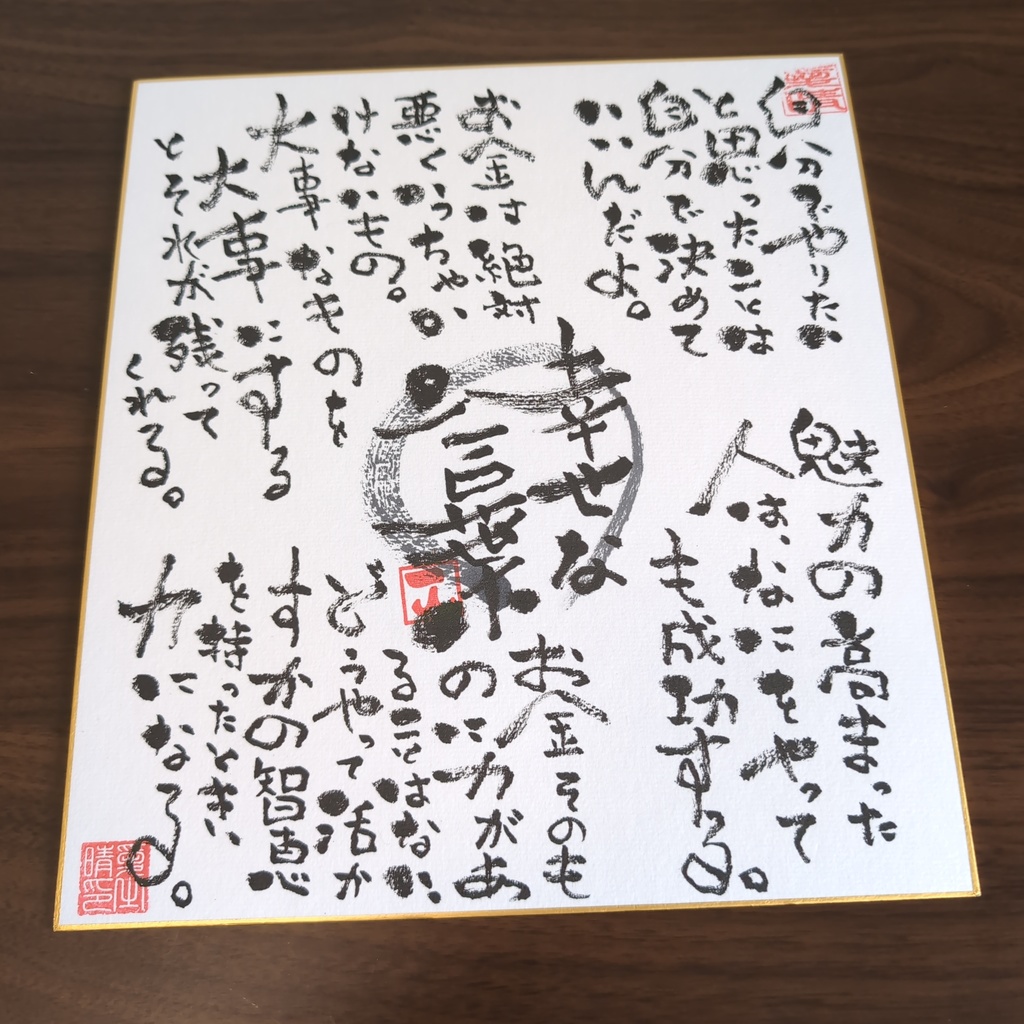 自分でやりたい
と思ったことは
自分で決めて
いいんだよ。
お金は絶対
悪くいっちゃい
けないもの。
大事なものを
大事にする
とそれが残って
くれる。
幸せな
言葉
魅力の高まった
人は、なにをやって
も成功する。
お金そのも
のに力があ
ることはない、
どうやって活か
すかの智恵
を持ったとき、
力になる。